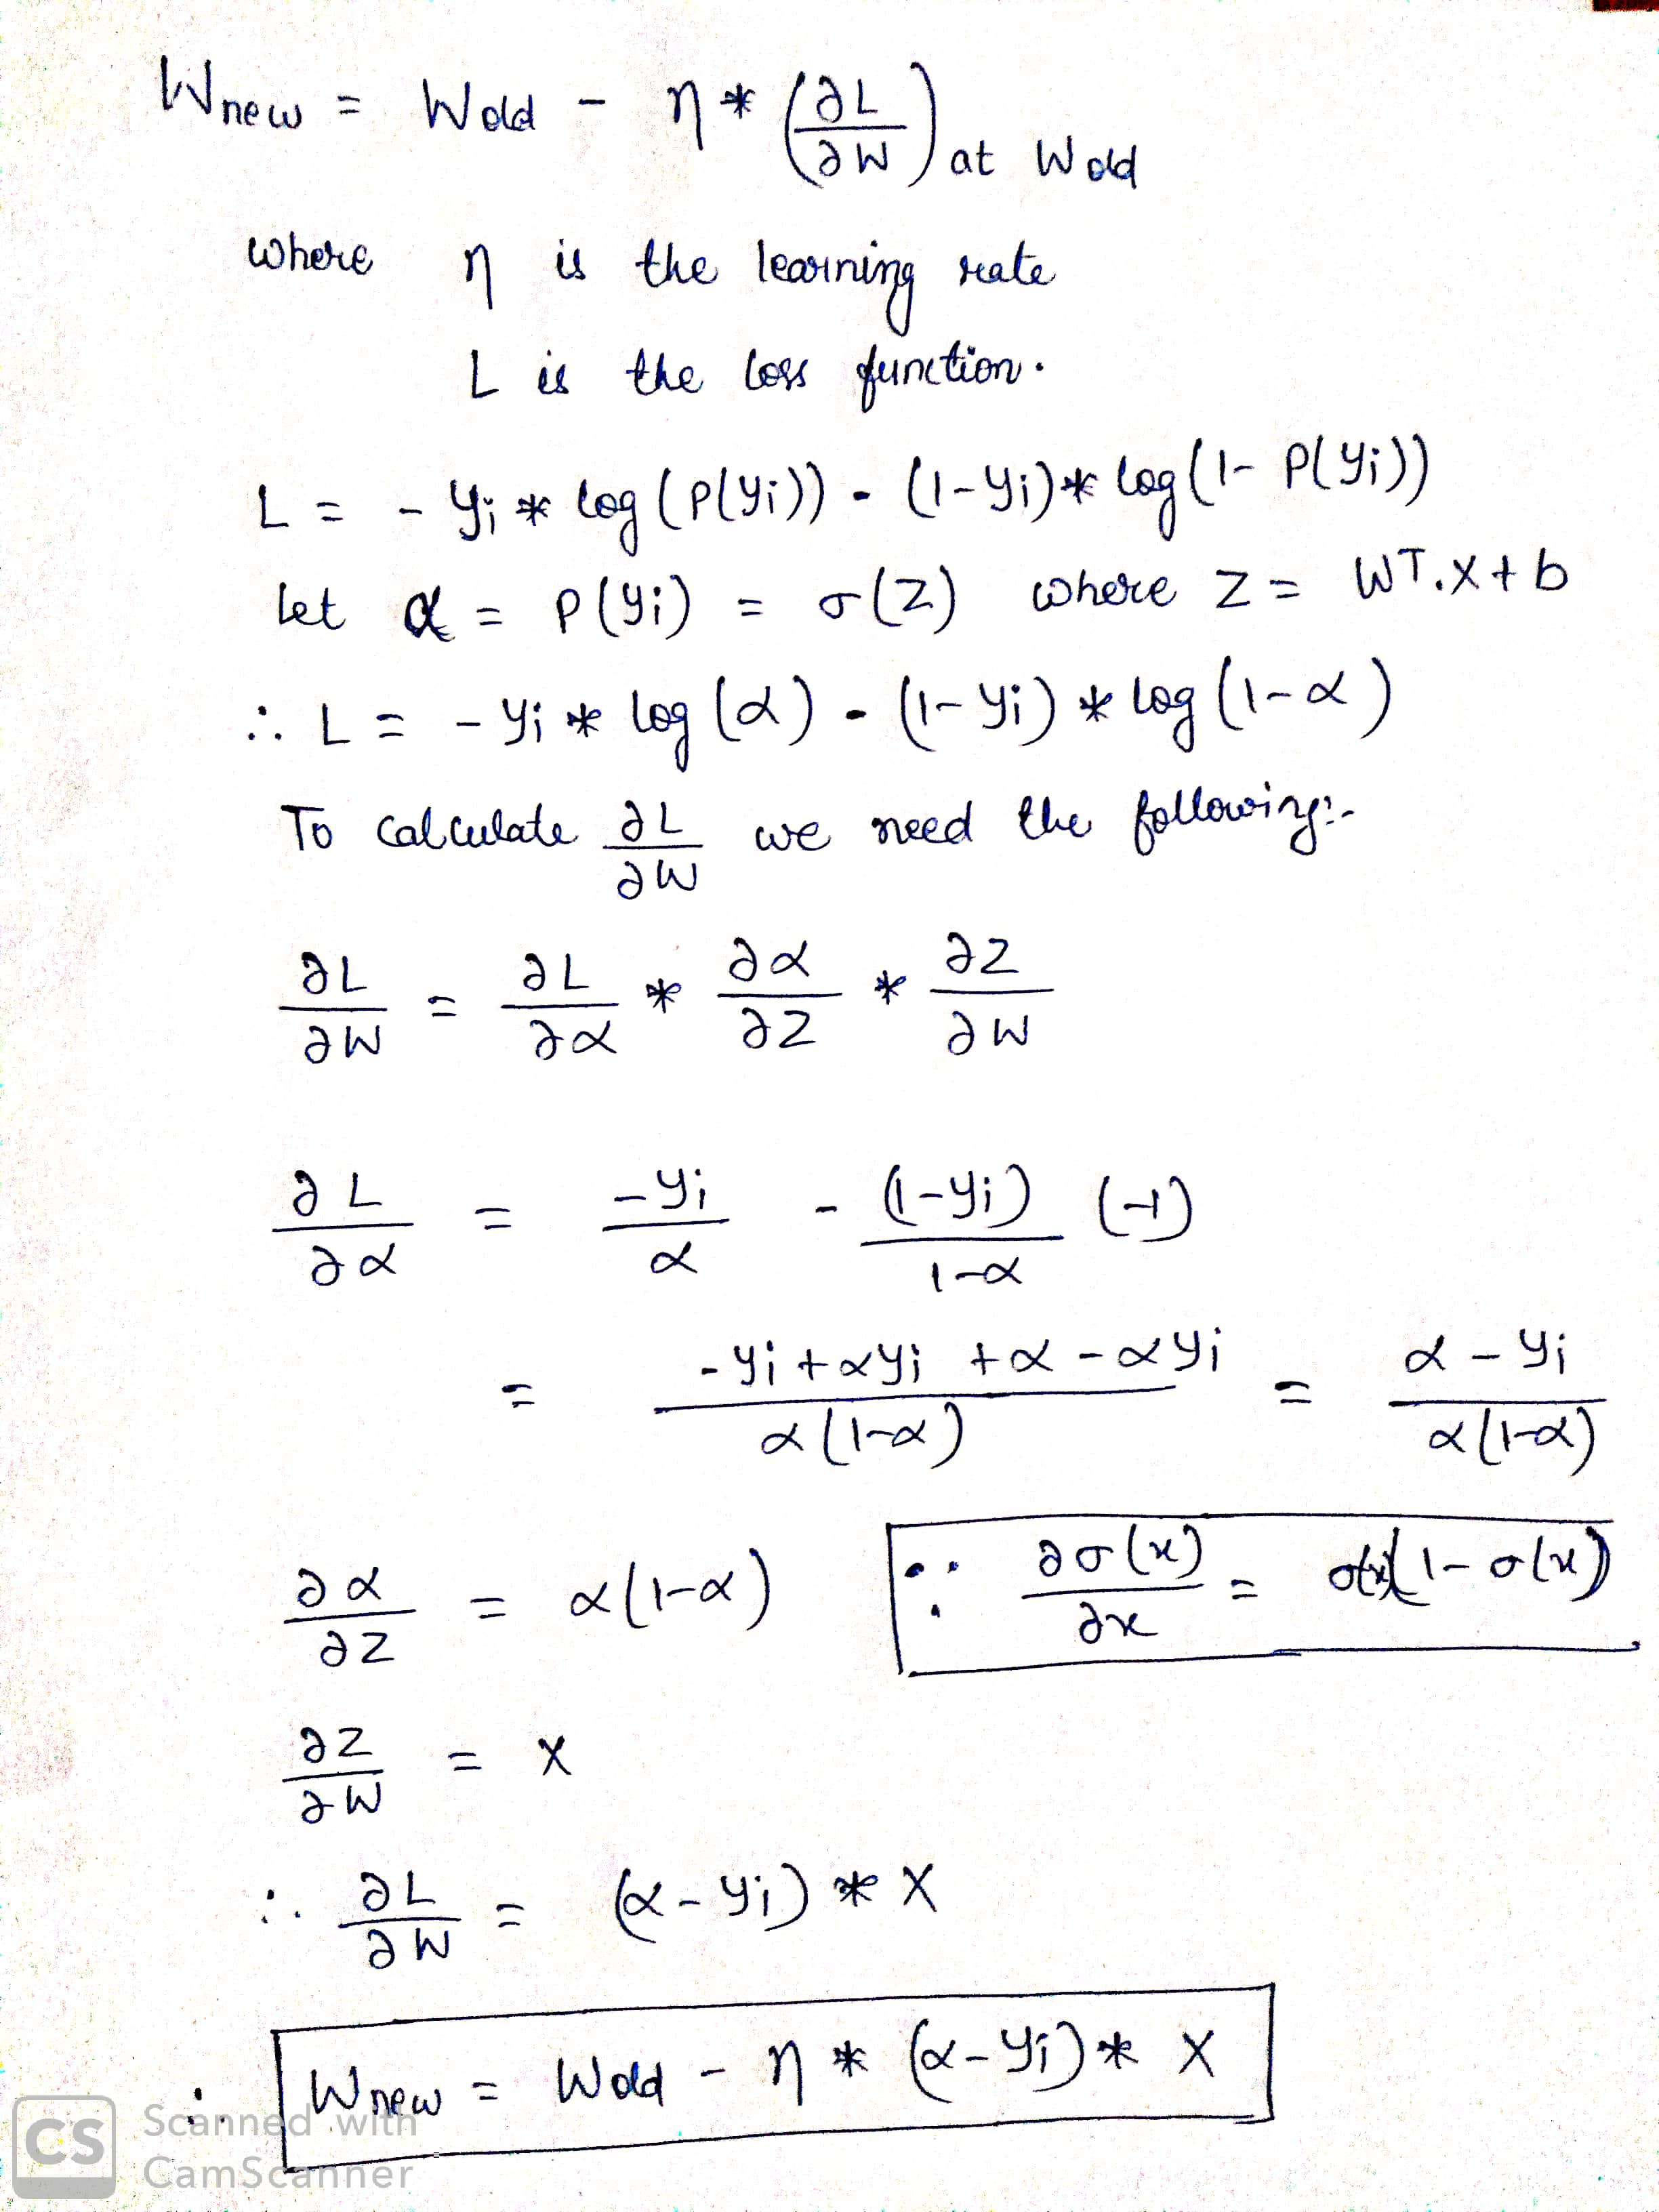 Wnew = Wold - η * (∂L/∂W) at Wold
where η is the learning rate
L is the loss function.
L = - yi * log (P(yi)) - (1-yi) * log (1- P(yi))
let α = P(yi) = σ(z) where z = WT.X + b
∴ L = - yi * log (α) - (1-yi) * log (1-α)
To calculate ∂L/∂W we need the following:-
∂L/∂W = ∂L/∂α * ∂α/∂z * ∂z/∂W
∂L/∂α = -yi/α - (1-yi)/1-α (-1)
= -yi + αyi + α - αyi / α(1-α) = α - yi / α(1-α)
∂α/∂z = α(1-α) ∵ ∂σ(x)/∂x = σ(x)(1-σ(x))
∂z/∂W = X
∴ ∂L/∂W = (α - yi) * X
∴ Wnew = Wold - η * (α-yi) * X
CS Scanned with
CamScanner